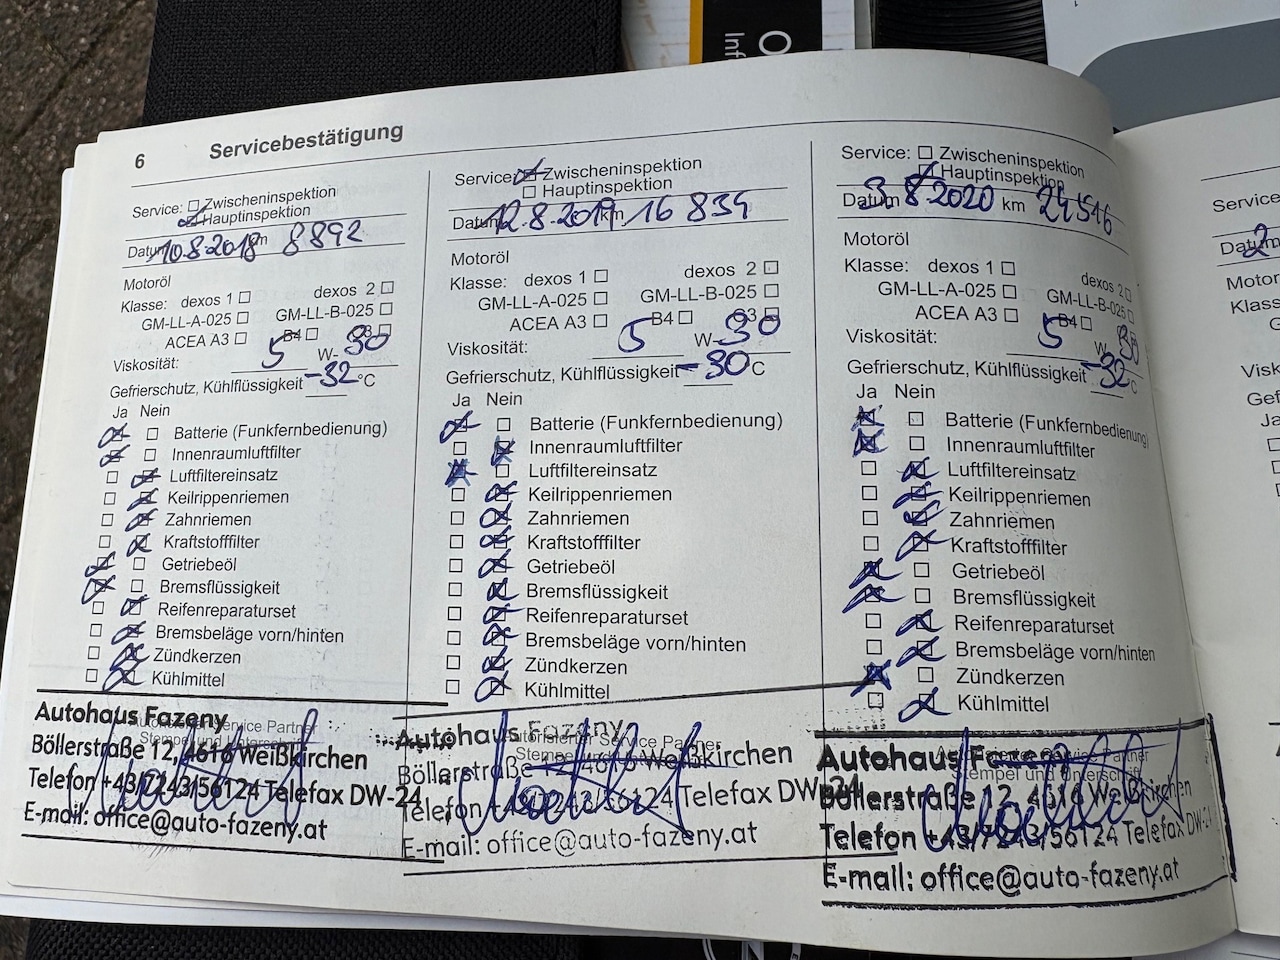 6 Servicebestätigung
Service: Zwischeninspektion
Hauptinspektion
Datum 10.8.2018 km 8892
Motoröl
Klasse: dexos 1 dexos 2
GM-LL-A-025 GM-LL-B-025
ACEA A3 B4 C3
Viskosität: 5 W- 30
Gefrierschutz, Kühlflüssigkeit -32 °C
Ja Nein
Batterie (Funkfernbedienung)
Innenraumluftfilter
Luftfiltereinsatz
Keilrippenriemen
Zahnriemen
Kraftstofffilter
Getriebeöl
Bremsflüssigkeit
Reifenreparaturset
Bremsbeläge vorn/hinten
Zündkerzen
Kühlmittel
Autorisierter Service Partner
Stempel und Unterschrift
Autohaus Fazeny
Böllerstraße 12, 4616 Weißkirchen
Telefon +43/7243/56124 Telefax DW-24
E-mail: office@auto-fazeny.at
Service: Zwischeninspektion
Hauptinspektion
Datum 12.8.2019 km 16 834
Motoröl
Klasse: dexos 1 dexos 2
GM-LL-A-025 GM-LL-B-025
ACEA A3 B4 C3
Viskosität: 5 W- 30
Gefrierschutz, Kühlflüssigkeit -30 °C
Ja Nein
Batterie (Funkfernbedienung)
Innenraumluftfilter
Luftfiltereinsatz
Keilrippenriemen
Zahnriemen
Kraftstofffilter
Getriebeöl
Bremsflüssigkeit
Reifenreparaturset
Bremsbeläge vorn/hinten
Zündkerzen
Kühlmittel
Autorisierter Service Partner
Stempel und Unterschrift
Autohaus Fazeny
Böllerstraße 12, 4616 Weißkirchen
Telefon +43/7243/56124 Telefax DW-24
E-mail: office@auto-fazeny.at
Service: Zwischeninspektion
Hauptinspektion
Datum 3.8.2020 km 24516
Motoröl
Klasse: dexos 1 dexos 2
GM-LL-A-025 GM-LL-B-025
ACEA A3 B4
Viskosität: 5 W- 30
Gefrierschutz, Kühlflüssigkeit -32 °C
Ja Nein
Batterie (Funkfernbedienung)
Innenraumluftfilter
Luftfiltereinsatz
Keilrippenriemen
Zahnriemen
Kraftstofffilter
Getriebeöl
Bremsflüssigkeit
Reifenreparaturset
Bremsbeläge vorn/hinten
Zündkerzen
Kühlmittel
Autorisierter Service Partner
Stempel und Unterschrift
Autohaus Fazeny
Böllerstraße 12, 4616 Weißkirchen
Telefon +43/7243/56124 Telefax DW-24
E-mail: office@auto-fazeny.at
Service
Datum 2
Motor
Klass
Visk
Gef
Ja